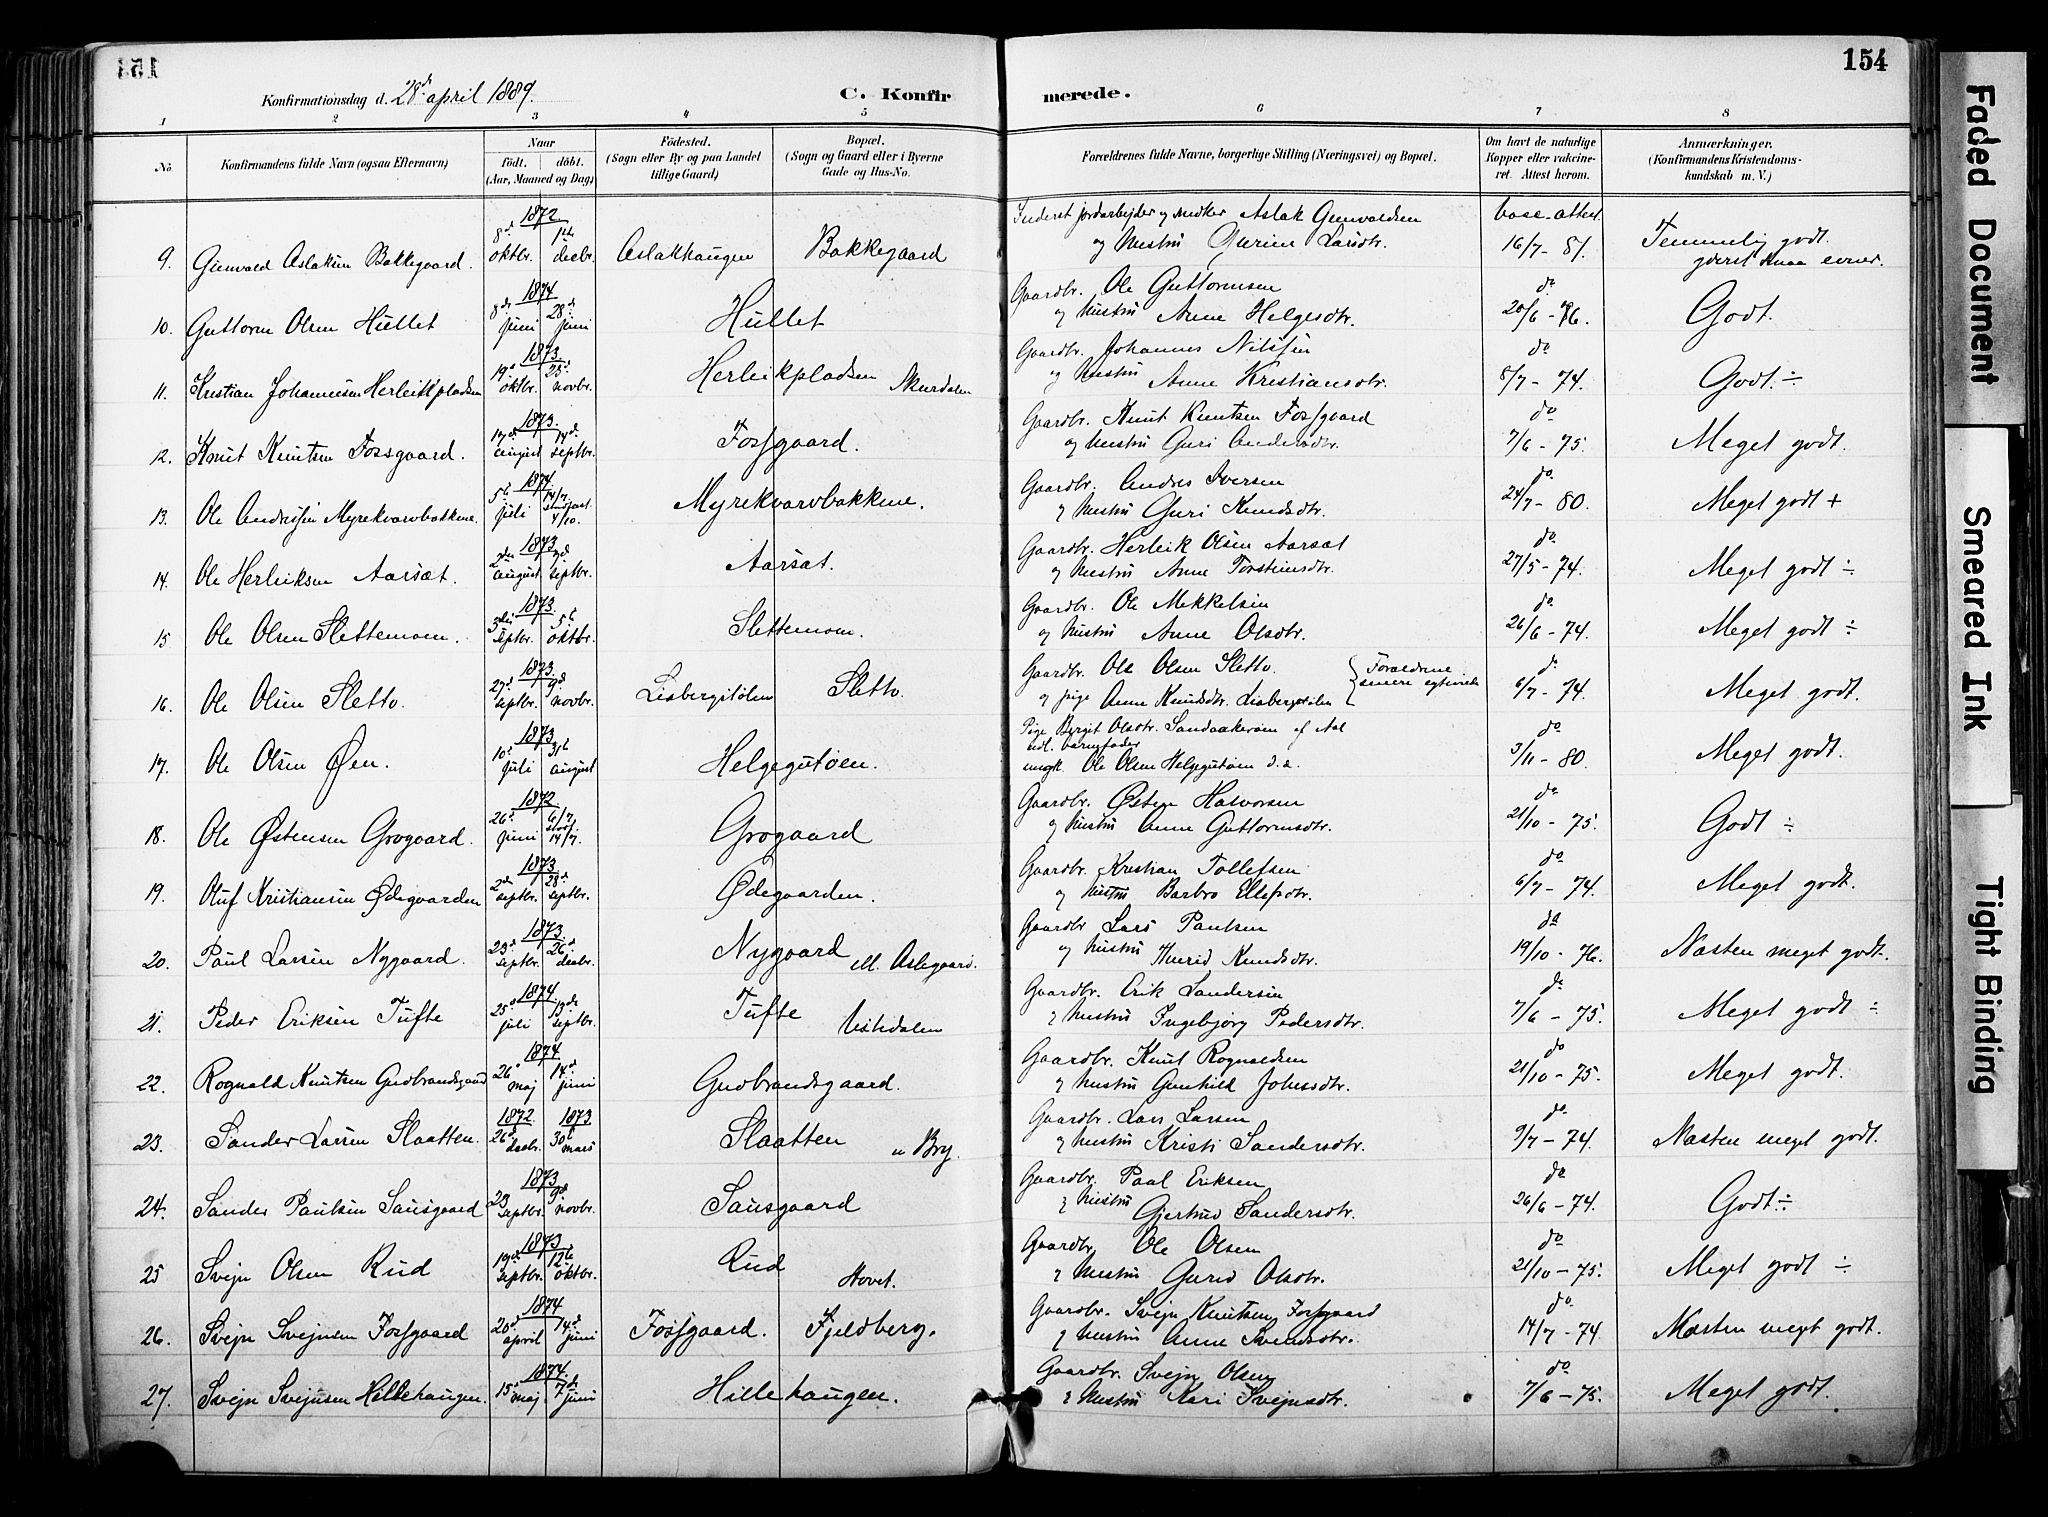 154
Konfirmationsdag d. 28de april 1889. C. Konfirmerede.
1 2 3 4 5 6 7 8
No. Konfirmandens fulde Navn (ogsaa Efternavn) Naar födt. döbt. (Aar, Maaned og Dag) Födested. (Sogn eller By og paa Landet tillige Gaard) Bopæl. (Sogn og Gaard eller i Byerne Gade og Hus-No. Forældrenes fulde Navne, borgerlige Stilling (Næringsvei) og Bopæl. Om havt de naturlige Kopper eller vakcineret. Attest herom. Anmærkninger. (Konfirmandens Kristendomskundskab m. V.)
9. Gunvald Aslaksen Bakkegaard. 1872 8de oktbr. 1ste decbr. Aslakhaugen Bakkegaard Inderst jordarbejder og smedker Aslak Gunvaldsen og hustru Gurine Larsdtr. vacc. attest. 16/7 - 81. Temmelig godt. yderst smaa evner.
10. Guttorm Olsen Hullet 1874 8de juni 28de juni Hullet Gaardbr. Ole Guttormsen og hustru Anne Helgesdtr. do 20/6 - 76. Godt.
11. Kristian Johannesen Herleikpladsen 1873. 19de oktbr. 23de novbr. Herleikpladsen Skurdalen Gaardbr. Johannes Nilssen og hustru Anne Kristiansdtr. do 8/7 - 74. Godt. ÷
12. Knut Knutsen Fossgaard. 1873. 17de august 14de septbr. Fossgaard. Gaardbr. Knut Knutsen Fossgaard og hustru Guri Andersdtr. do 7/6 - 75. Meget godt.
13. Ole Andresen Myrekvarvbakkene. 1874. 5te juli 14/7 stadfæst 4/10. Myrekvarvbakkene. Gaardbr. Andres Iversen og hustru Guri Knudsdtr. do 24/7 - 80. Meget godt +
14. Ole Herleiksen Aarset. 1873 2den august 7de septbr. Aarsæt. Gaardbr. Herleik Olsen Aarsæt og hustru Anne Torsteinsdtr. do 27/5 - 74. Meget godt ÷
15. Ole Olsen Slettemoen. 1873. 3die septbr. 5te oktbr. Slettemoen. Gaardbr. Ole Mekkelsen og hustru Anne Olsdtr. do 26/6 - 74. Meget godt ÷
16. Ole Olsen Sletto. 1873. 27de septbr. 9de novbr. Lisbergstølen Sletto. Gaardbr. Ole Olsen Sletto. og pige Anne Knudsdtr. Lisbergstølen Forældrene senere egteviede do 6/7 - 74. Meget godt.
17. Ole Olsen Øen. 1873. 10de juli 31te august Helgegutøen. Pige Birgit Olsdtr. Sandaakeren af Aal udl. barnefader ungk. Ole Olsen Helgegutøen d.e. do 3/11 - 80. Meget godt.
18. Ole Østensen Grøgaard. 1872. 26de juni 6/7 stadf. 14/7. Grøgaard Gaardbr. Østen Halvorsen og hustru Anne Guttormsdtr. do 21/10 - 75. Godt ÷
19. Oluf Kristiansen Ødegaarden 1873 2den septbr. 28de septbr. Ødegaarden. Gaardbr. Kristian Tollefsen og hustru Barbro Ellefsdtr. do 6/7 - 74. Meget godt.
20. Paul Larsen Nygaard. 1873. 23de septbr. 26de decbr. Nygaard ell. Aslegaard. Gaardbr Lars Paulsen og hustru Thurid Knudsdtr. do 19/10 - 76. Næsten meget godt.
21. Peder Eriksen Tufte 1874. 25de juli 13de septbr. Tufte Ustedalen Gaardbr. Erik Sandersen og hustru Ingebjørg Pedersdtr. do 7/6 - 75. Meget godt ÷
22. Rognald Knutsen Gudbrandsgaard 1874. 26de maj 14de juni Gudbrandsgaard. Gaardbr. Knut Rognaldsen og hustru Gunhild Johnsdtr. do 21/10 - 75. Meget godt.
23. Sander Larsen Slaatten. 1872 26de decbr. 1873 30te mars Slaatten u Bry. Gaardbr. Lars Larsen og hustru Kristi Sandersdtr. do 9/7 - 74. Næsten meget godt.
24. Sander Paulsen Sausgaard 1873 23de septbr. 9de novbr. Sausgaard Gaardbr. Paal Eriksen og hustru Gjertrud Sandersdtr. do 26/6 - 74. Godt ÷
25 Svejn Olsen Rud 1873 19de septbr. 12te oktbr. Rud Hovet. Gaardbr. Ole Olsen og hustru Gurid Olsdtr. do 21/10 - 75. Meget godt ÷
26. Svejn Svejnsen Fossgaard 1874 20de april 14de juni Fossgaard. Fjeldberg. Gaardbr. Svejn Knutsen Fossgaard og hustru Anne Svendsdtr. do 14/7 - 74 Næsten meget godt.
27. Svejn Svejnsen Hillehaugen. 1874. 15de maj 7de juni Hillehaugen. Gaardbr. Svejn Olsen og hustru Kari Svejnsdtr. do 7/6 - 75. Meget godt.
Faded Document
Smeared Ink
Tight Binding